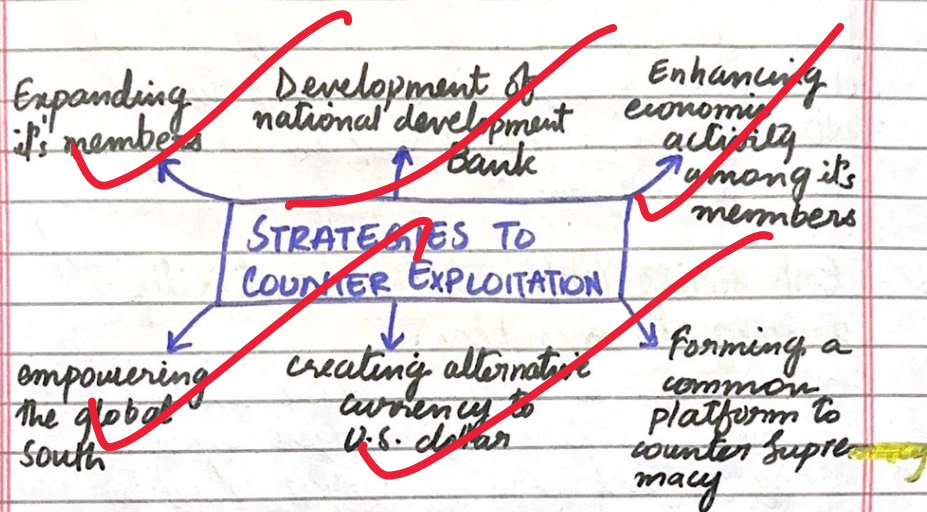 Expanding
it's members
Development of
national development
Bank
Enhancing
economic
activity
among it's
members
STRATEGIES TO
COUNTER EXPLOITATION
empowering
the global
south
creating alternative
currency to
U.S. dollar
Forming a
common
platform to
counter supre-
macy